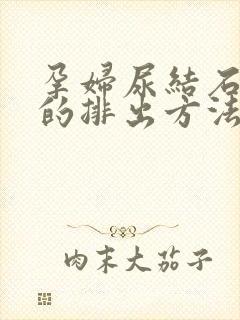 孕婦尿結石
的排出方法
肉末大茄子